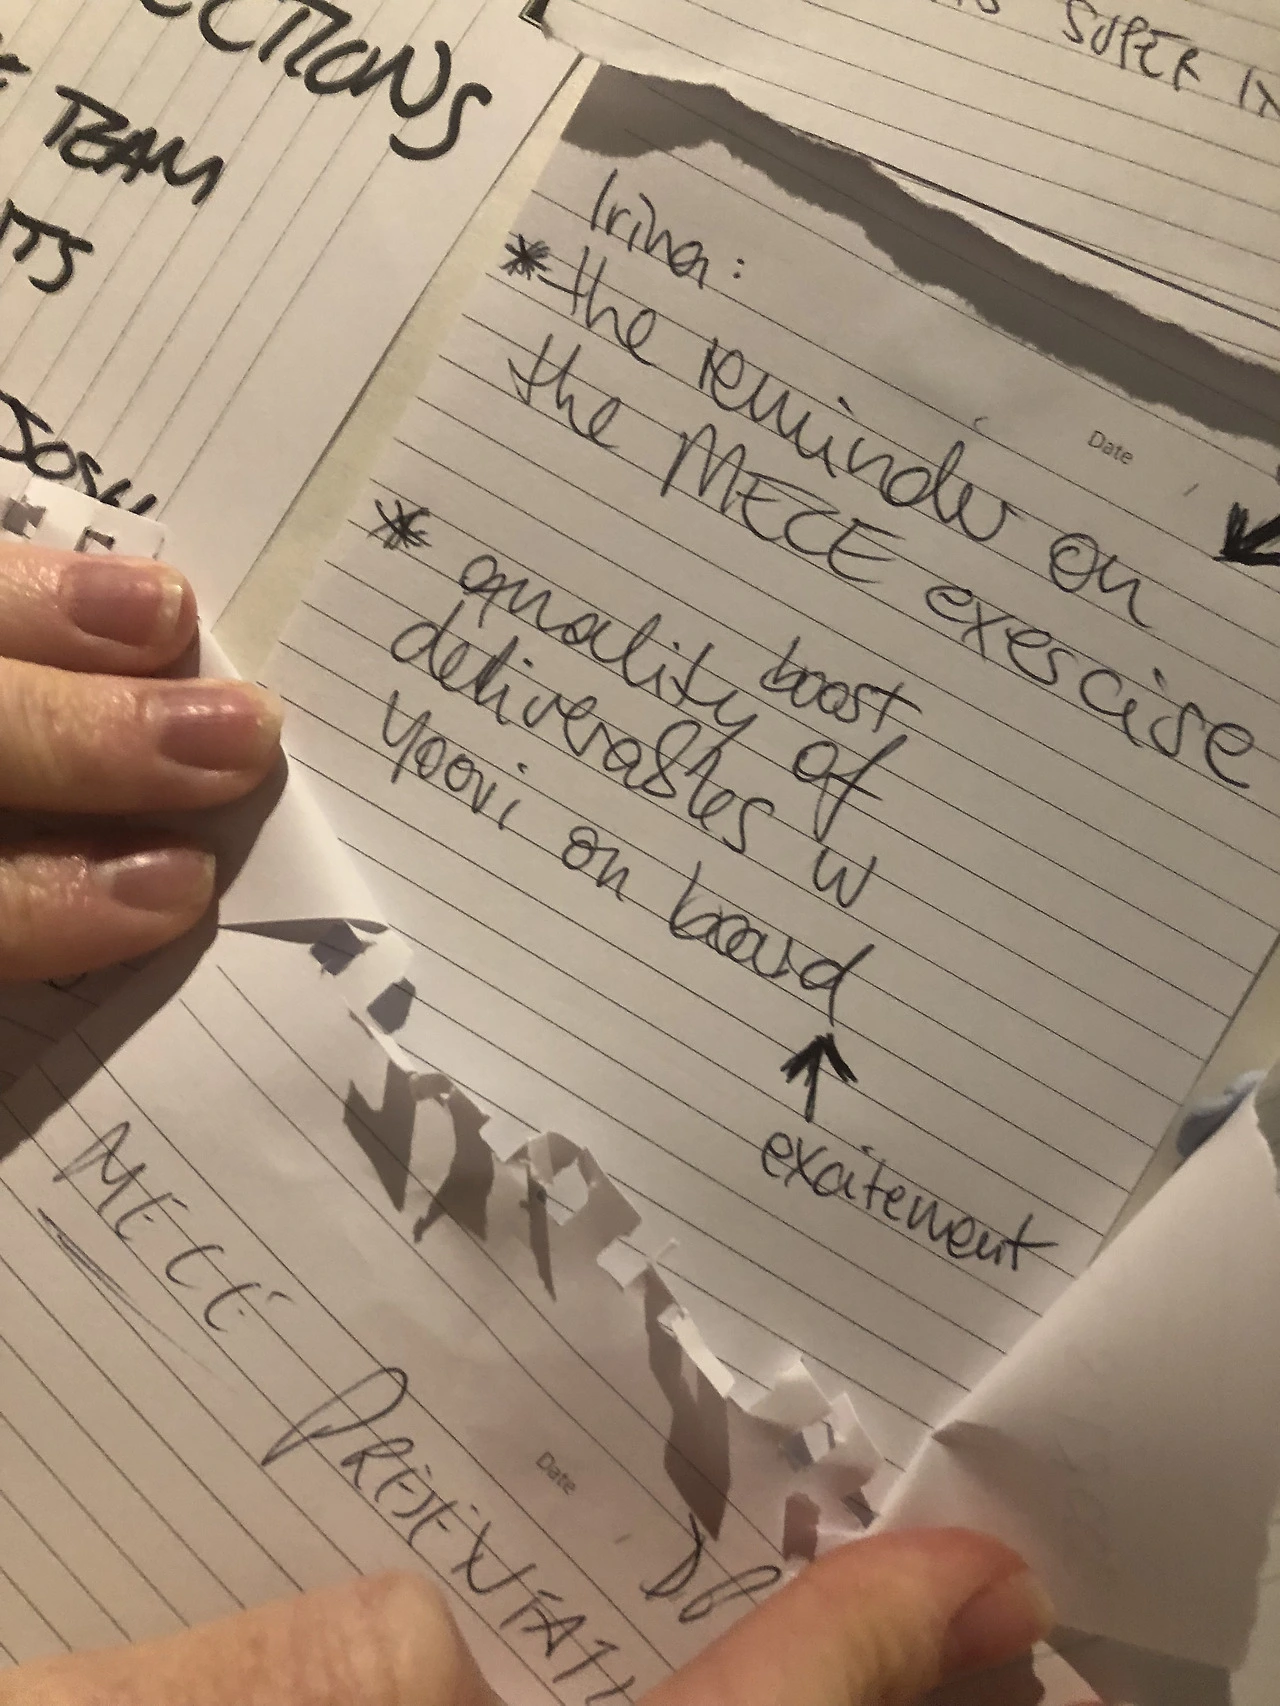 CTIONS
TEAM
TS
JOSH
SUPER
Irina:
* the reminder on
the MECE exercise
* quality boost of
deliverables w
yoovi on board
excitement
Date
MECE
PRESENTATI
Date
DB